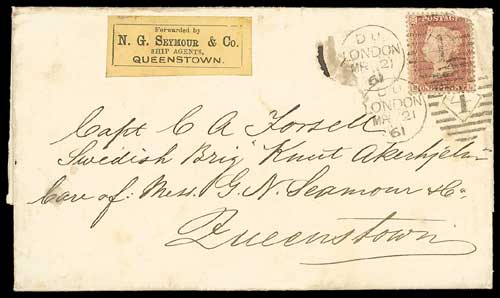 Forwarded by
N. G. SEYMOUR & Co.
SHIP AGENTS,
QUEENSTOWN.
LONDON
MR 21
61
LONDON
MR 21
61
POSTAGE
ONE PENNY
Capt C A Forsell
Swedish Brig Knut Akerhjelm
Care of: Mess. G. N. Seamour & Co.
Queenstown